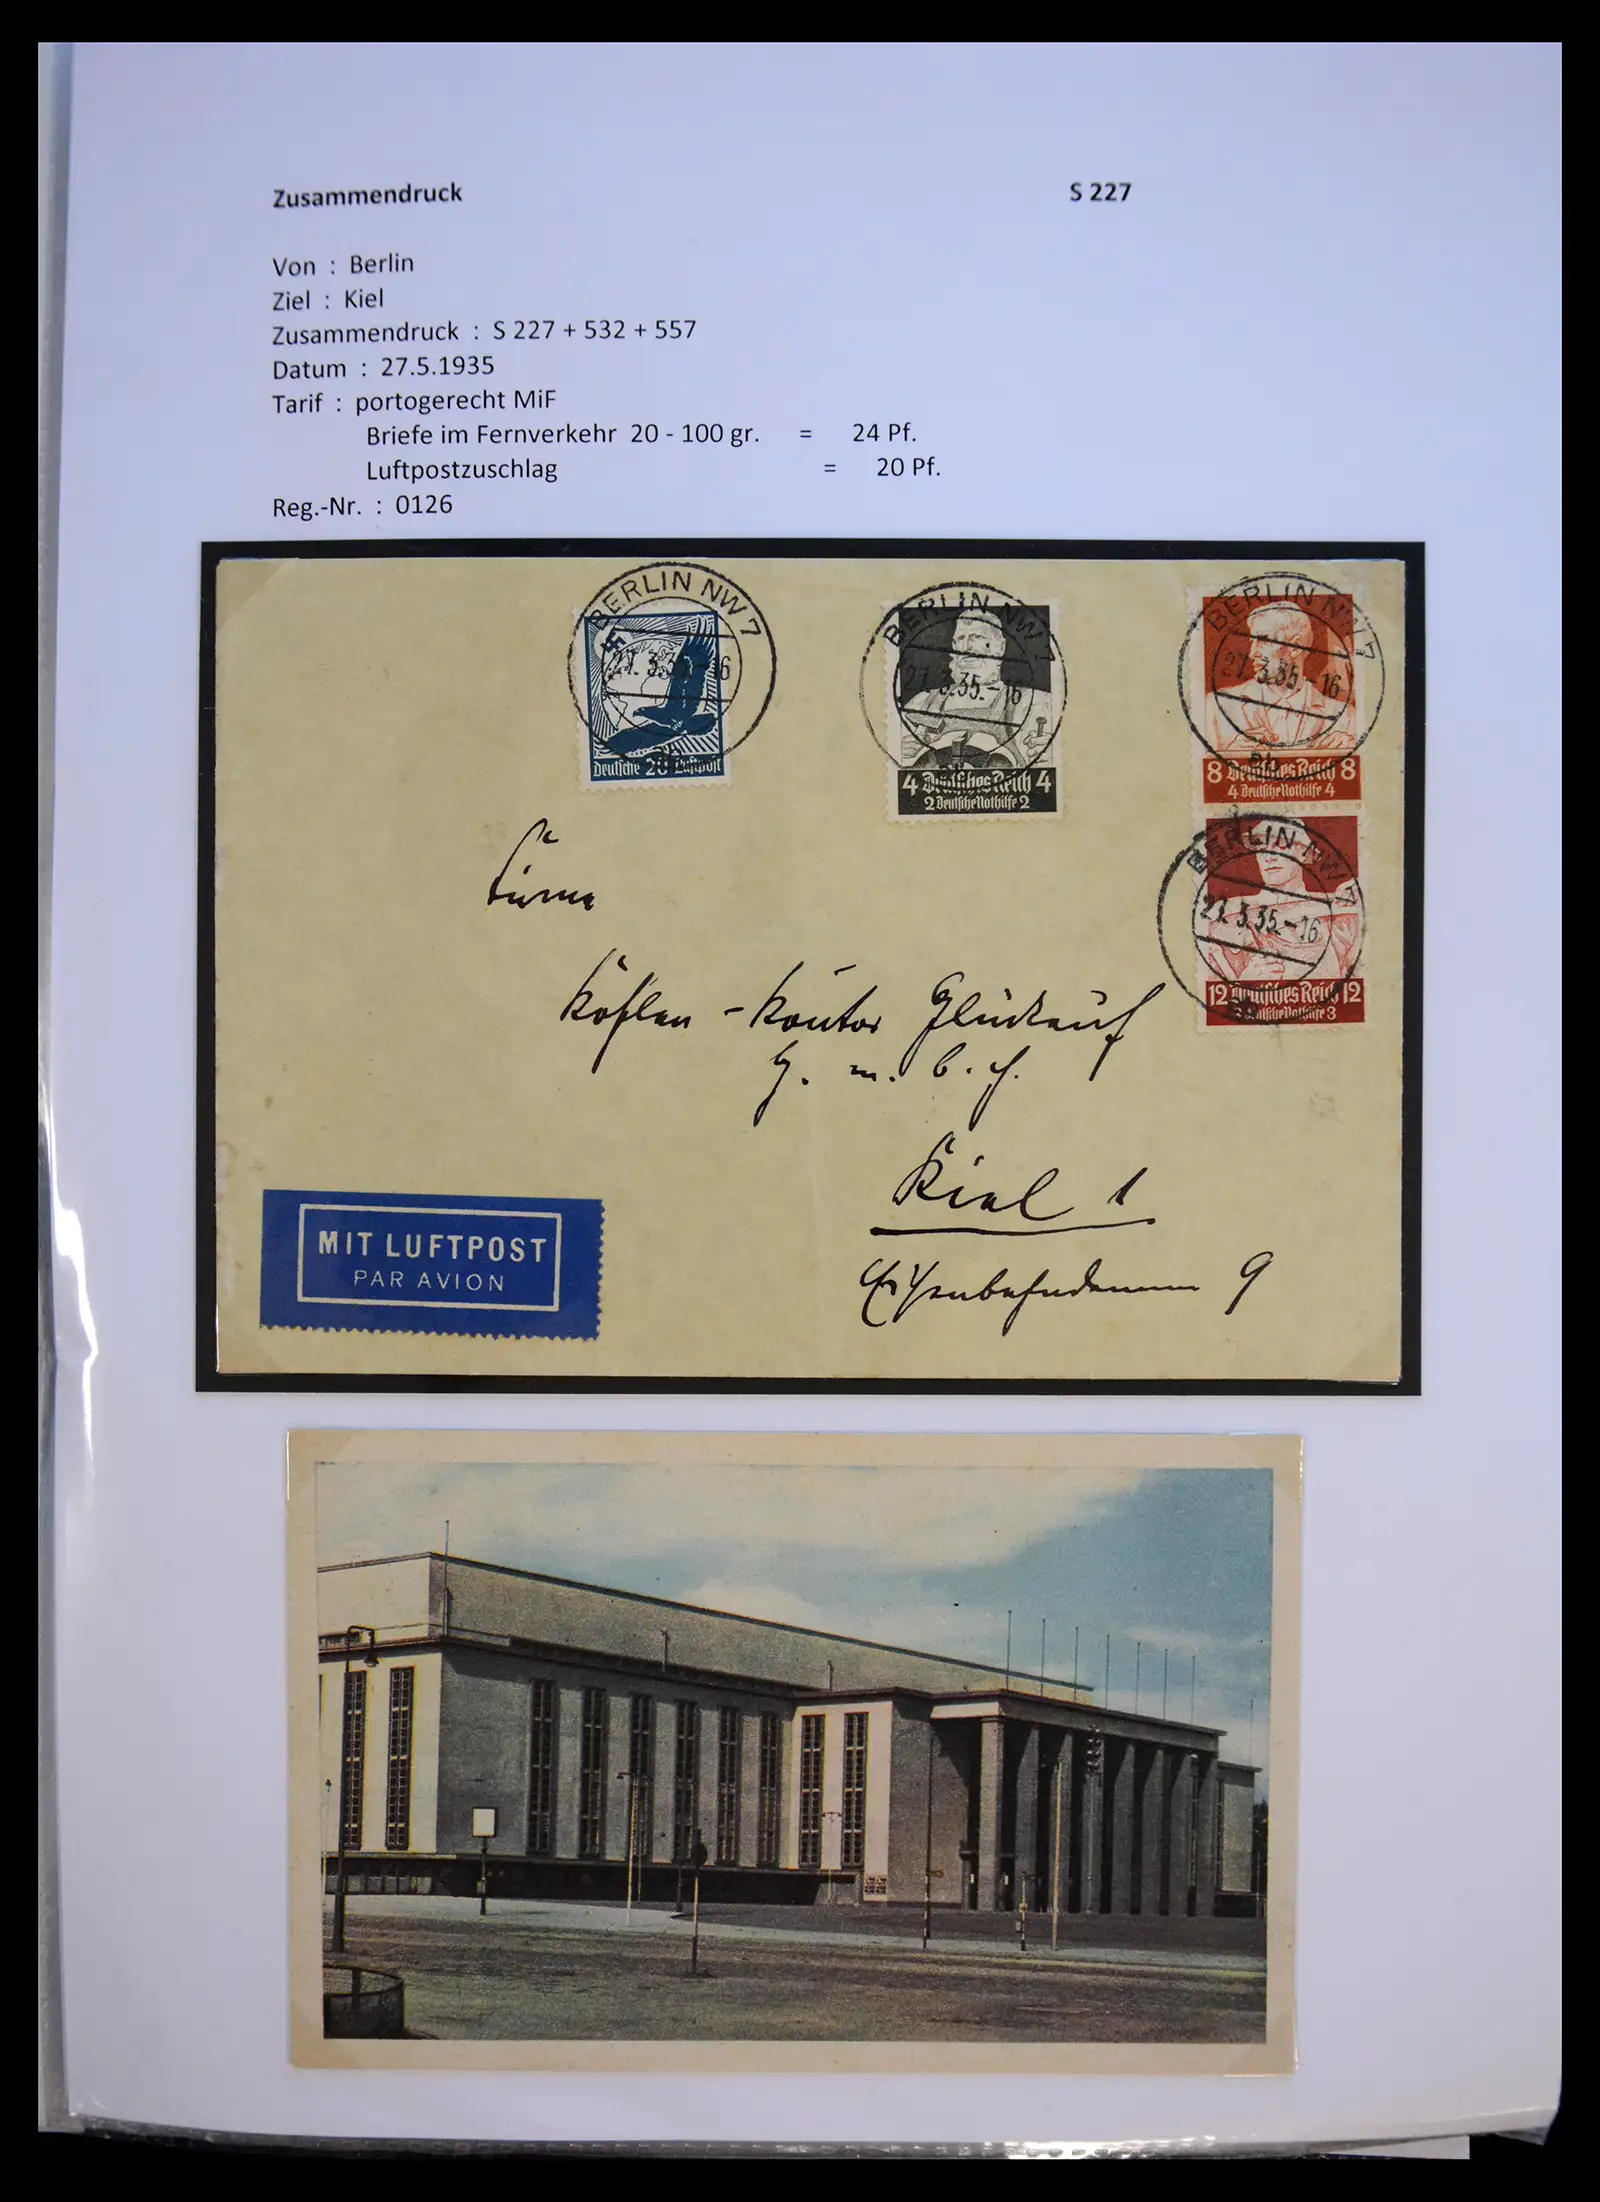 Zusammendruck S 227
Von : Berlin
Ziel : Kiel
Zusammendruck : S 227 + 532 + 557
Datum : 27.5.1935
Tarif : portogerecht MiF
Briefe im Fernverkehr 20 - 100 gr. = 24 Pf.
Luftpostzuschlag = 20 Pf.
Reg.-Nr. : 0126
BERLIN NW 7
Deutsche 20 Luftpost
BERLIN NW 7
27.3.35.-16
4 Deutsches Reich 4
2 Deutsche Nothilfe 2
BERLIN NW 7
27.3.35.-16
8 Deutsches Reich 8
4 Deutsche Nothilfe 4
BERLIN NW 7
27.3.35.-16
12 Deutsches Reich 12
3 Deutsche Nothilfe 3
Firma
Kohlen-Kontor Glückauf
G. m. b. H.
Kiel 1
Eisenbahndamm 9
MIT LUFTPOST
PAR AVION